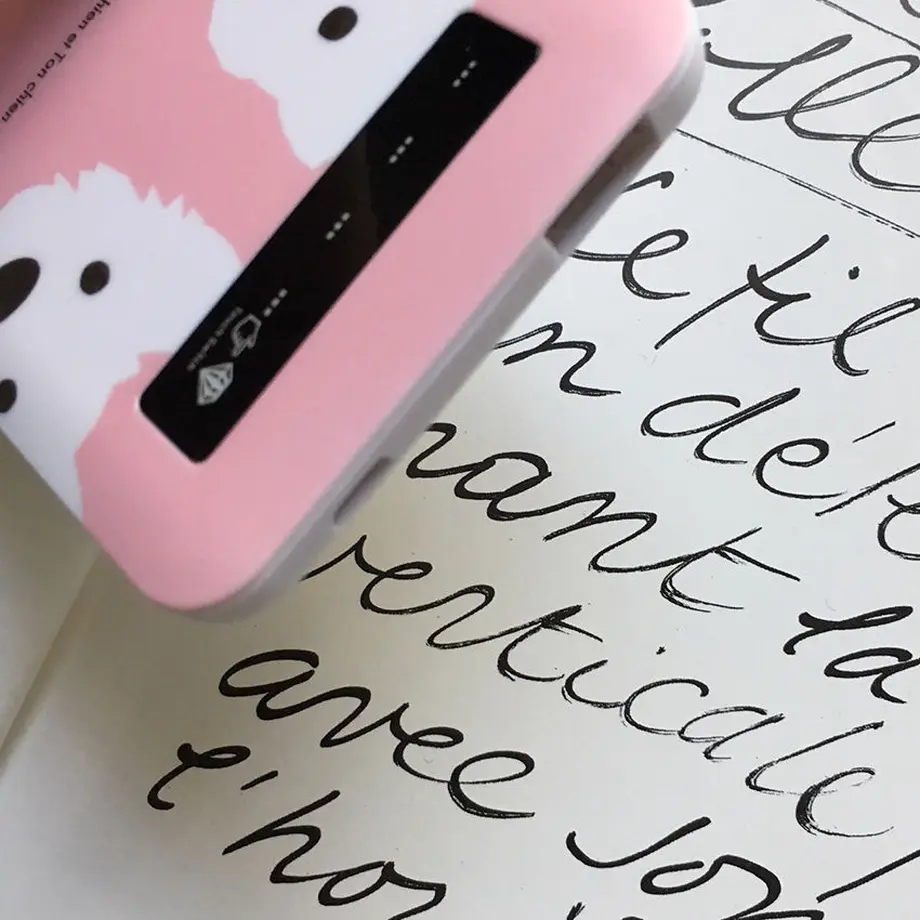 hien et Ton chien
Touch Switch
alle
Ce fil
n dé
nant la
verticale
avec son
l'ho